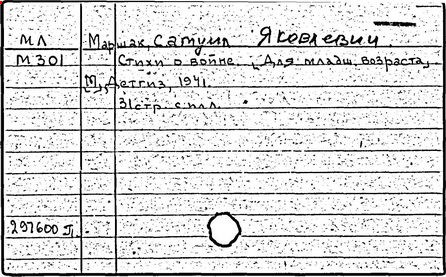 МЛ Маршак, Самуил Яковлевич.
М301 Стихи о войне. [Для младш. возраста]
[М], Детгиз, 1941.
31стр. с илл.
297600 П.